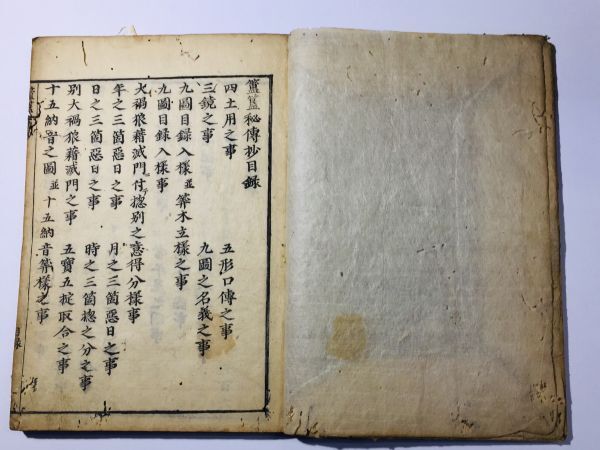 簠簋秘傳抄目錄
四土用之事　五形口傳之事
三鏡之事　九圖之名義之事
九圖目録入樣並筭木立樣之事
九圖目録入樣事
大禍狼藉滅門付揔別之意得分樣事
年之三箇惡日之事　月之三箇惡日之事
日之三箇惡日之事　時之三箇揔之分之事
別大禍狼藉滅門之事　五寳五掟取合之事
十五納音之圖並十五納音筭樣之事
目録